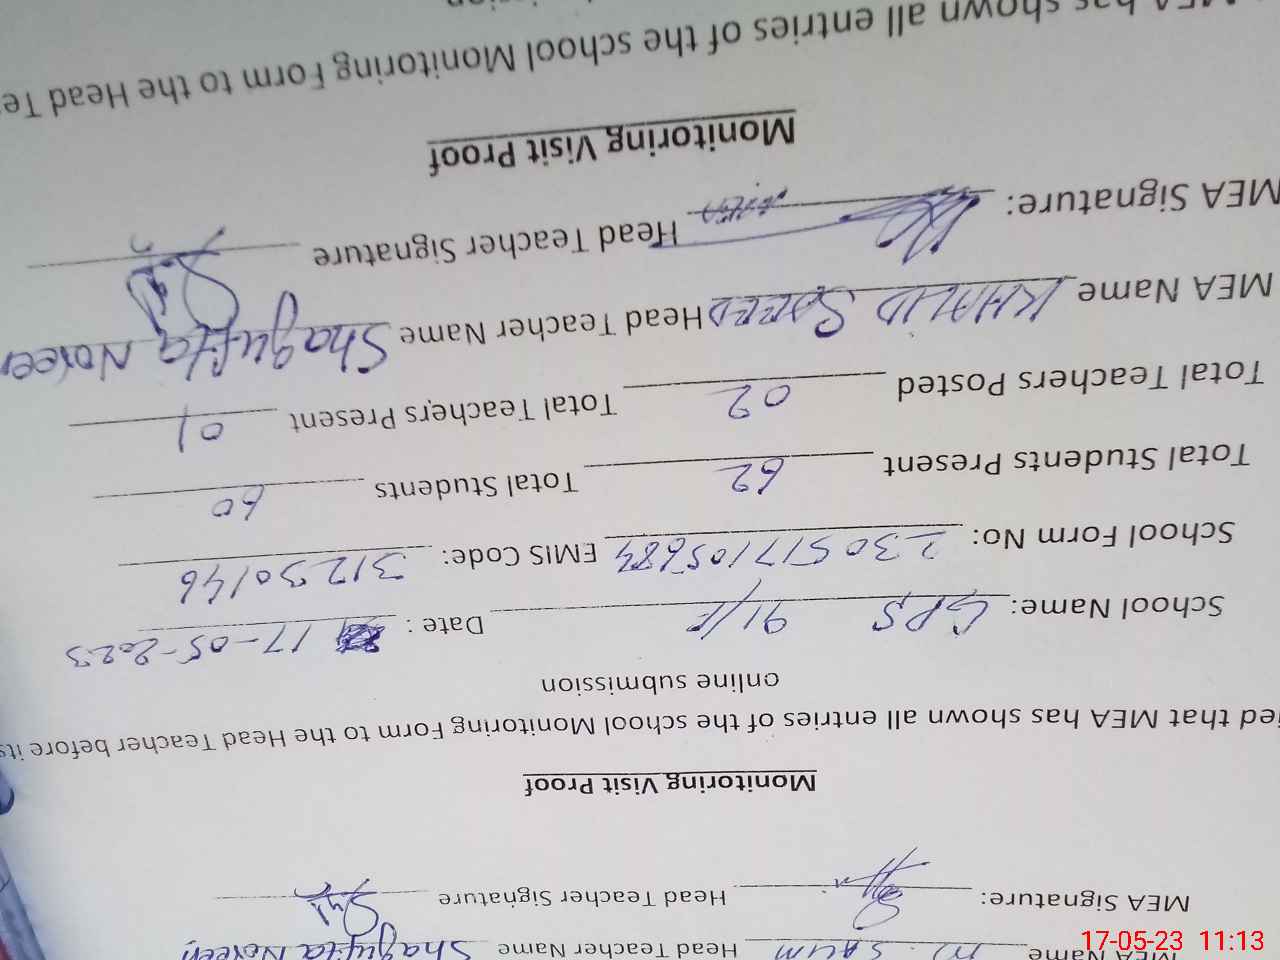 MEA Name M. SALIM Head Teacher Name Shagufta Noreen
MEA Signature: Head Teacher Signature
Monitoring Visit Proof
ied that MEA has shown all entries of the school Monitoring Form to the Head Teacher before its
online submission
School Name: GPS 91/F Date : 17-05-2023
School Form No: 230517105684 EMIS Code: 31230146
Total Students Present 62 Total Students 60
Total Teachers Posted 02 Total Teachers Present 01
MEA Name KHALID SAEED Head Teacher Name Shagufta Noreen
MEA Signature: Head Teacher Signature
Monitoring Visit Proof
MEA has shown all entries of the school Monitoring Form to the Head Te
17-05-23 11:13